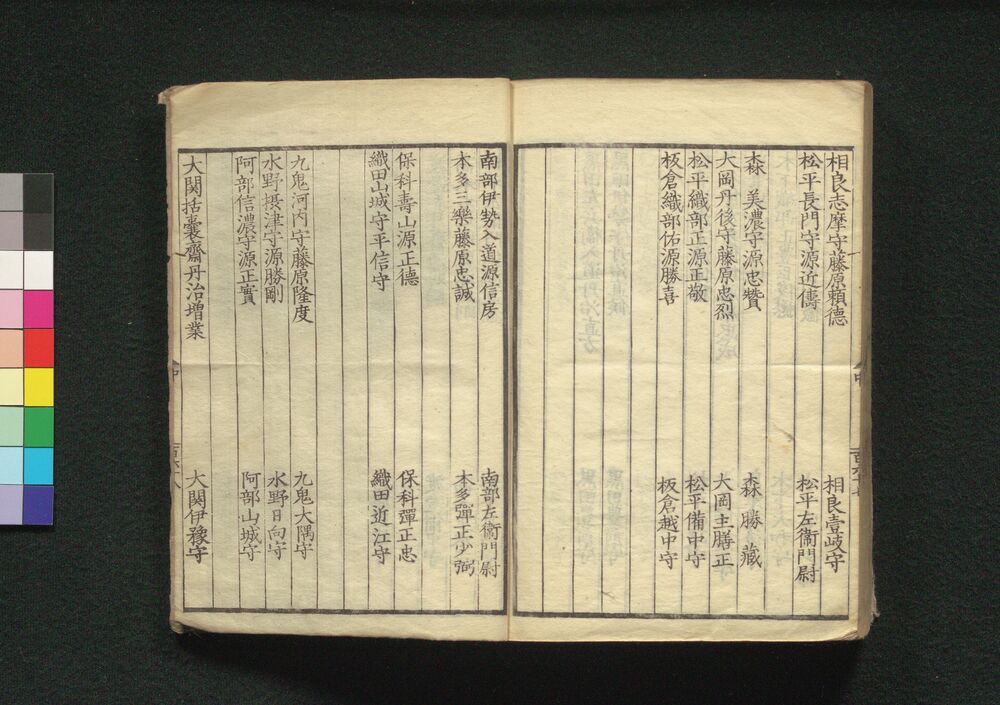 相良志摩守藤原頼德　相良壹岐守
松平長門守源近儔　松平左衞門尉
森　美濃守源忠贊　森　勝藏
大岡丹後守藤原忠烈　大岡主膳正
松平織部正源正敬　松平備中守
板倉織部佑源勝喜　板倉越中守
南部伊勢入道源信房　南部左衞門尉
本多三樂藤原忠誠　本多彈正少弼
保科壽山源正德　保科彈正忠
織田山城守平信守　織田近江守
九鬼河内守藤原隆度　九鬼大隅守
水野摂津守源勝剛　水野日向守
阿部信濃守源正實　阿部山城守
大関括嚢齋丹治増業　大関伊豫守
中
百六十七
中
百六十八